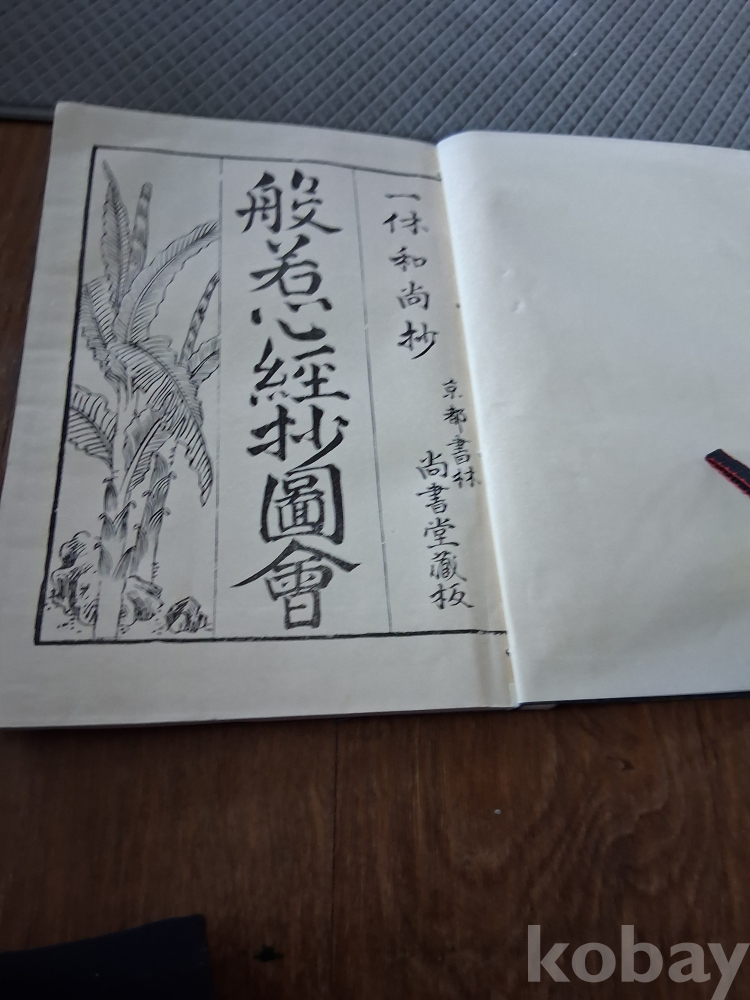 一休和尚抄
般若心経抄圖會
京都書林
尚書堂藏板
kobay